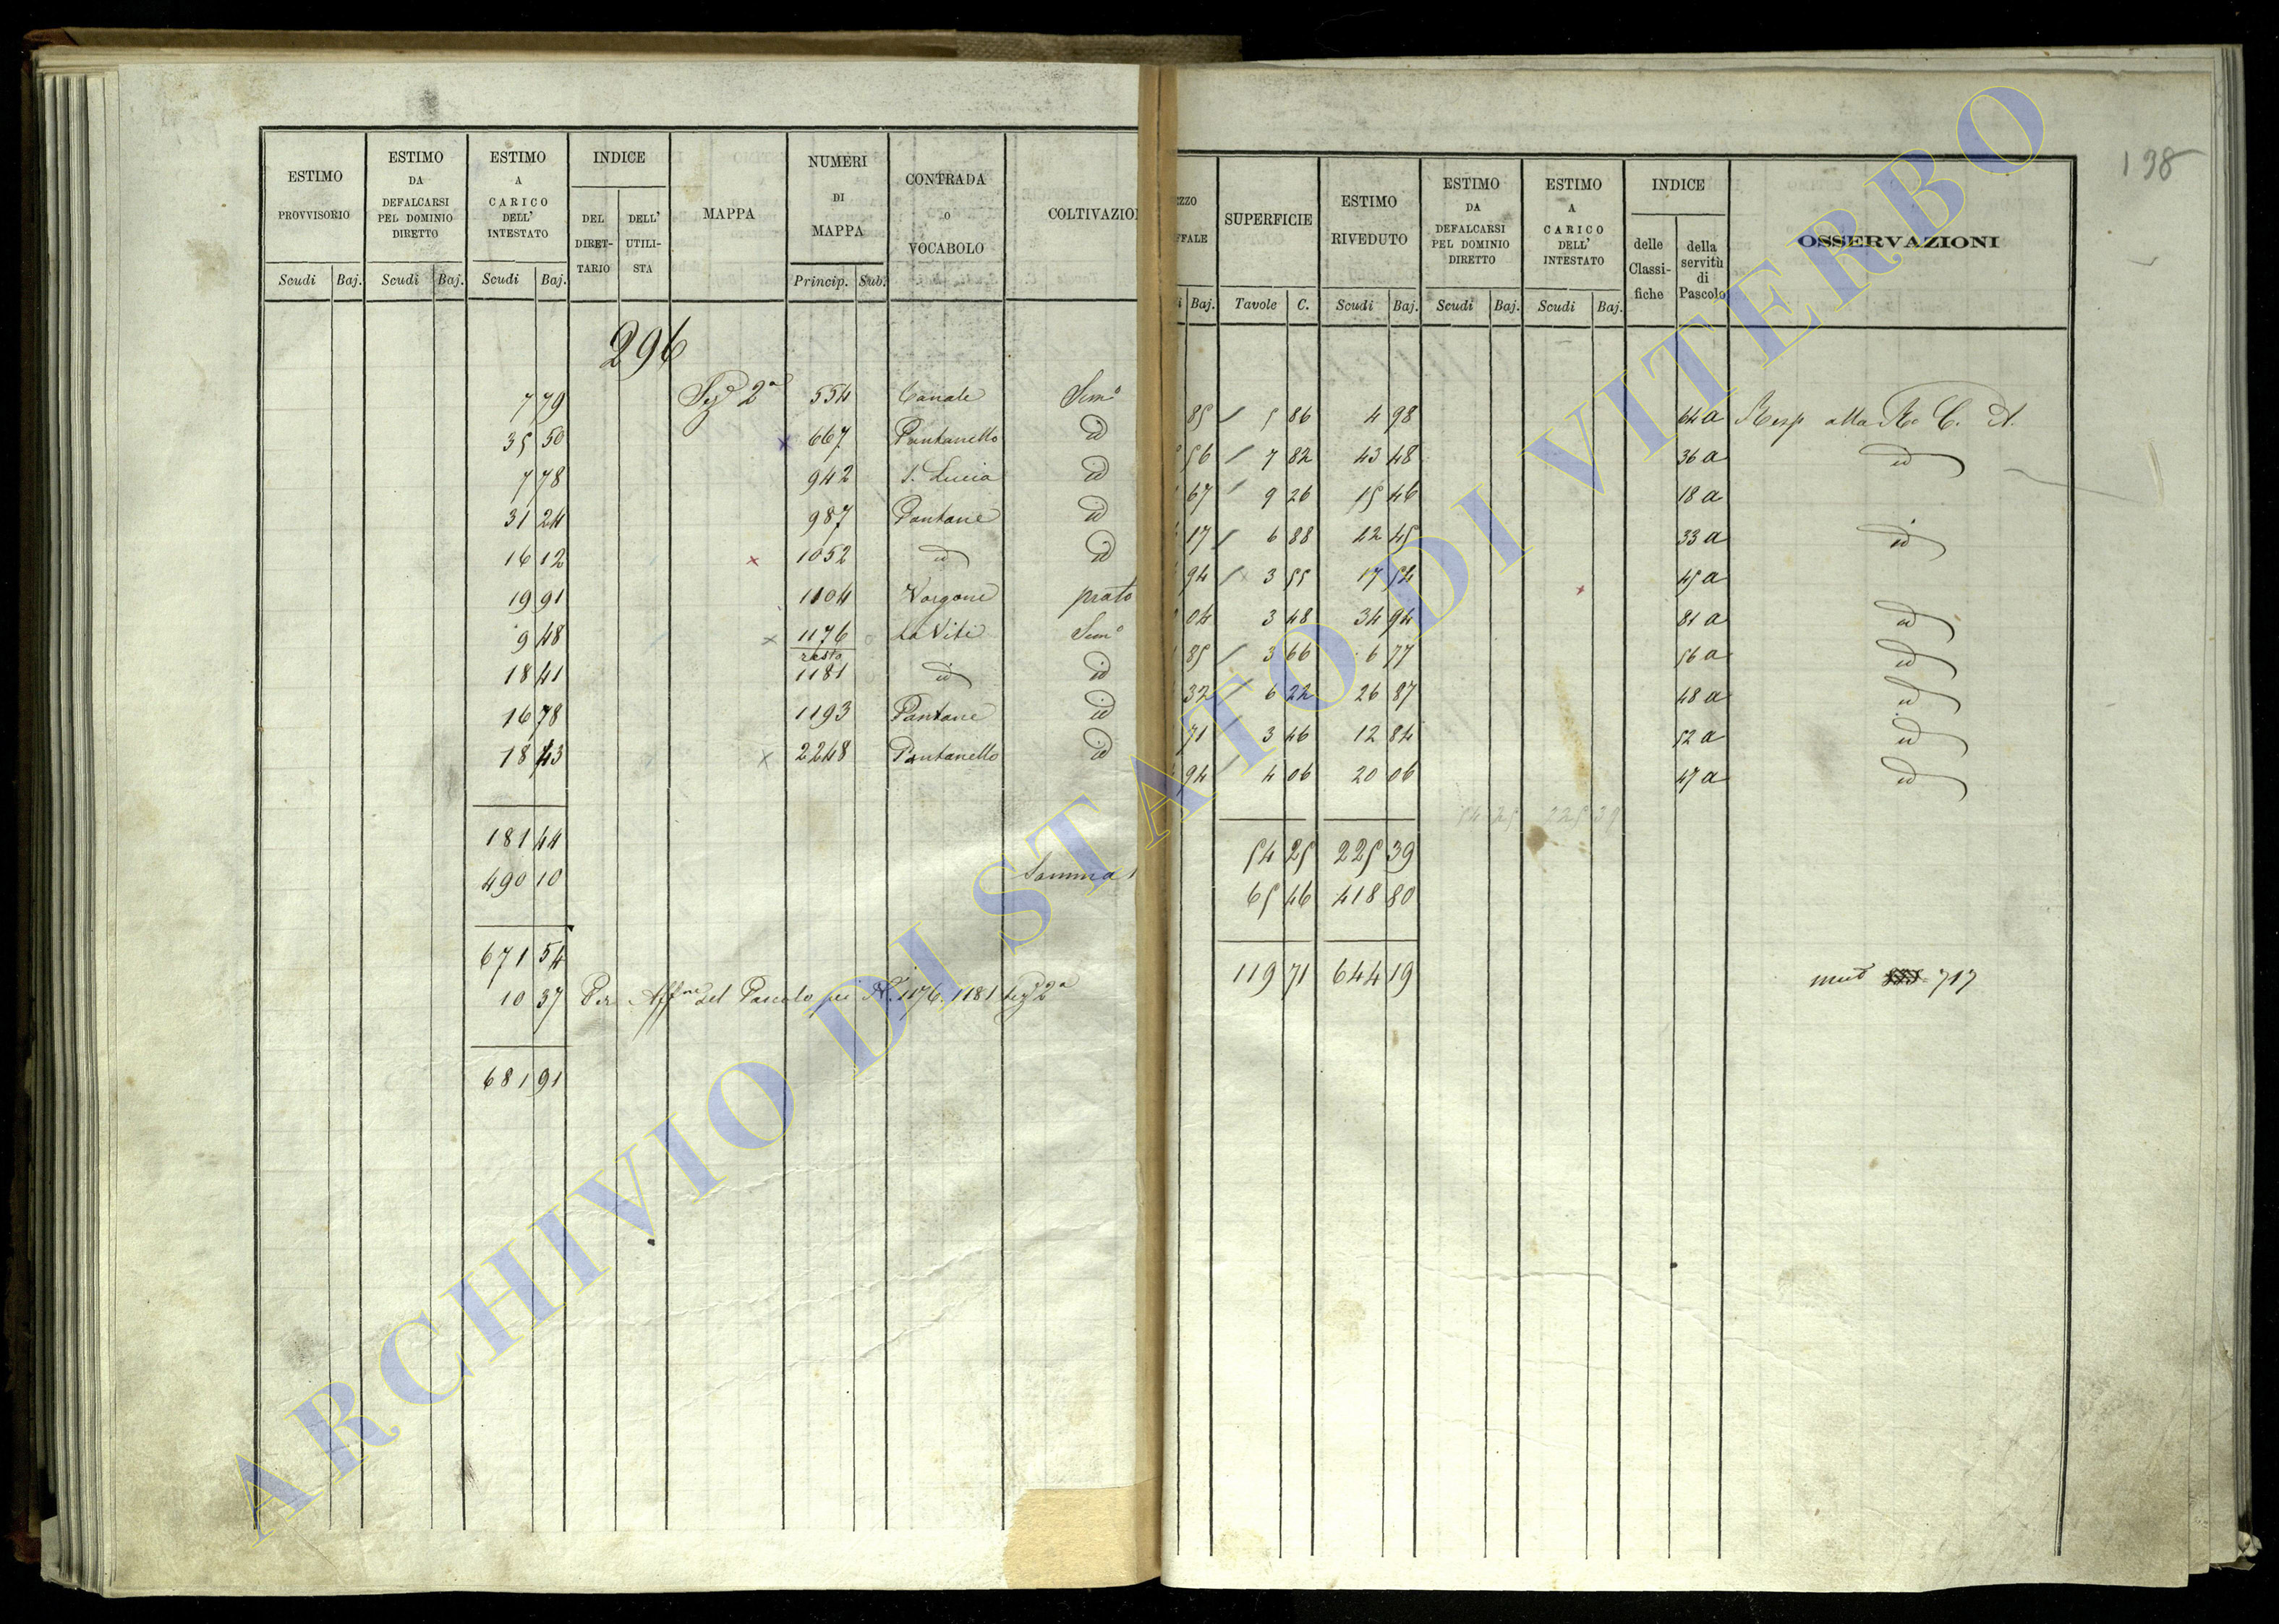 138
ESTIMO PROVVISORIO | ESTIMO DA DEFALCARSI PEL DOMINIO DIRETTO | ESTIMO A CARICO DELL' INTESTATO | INDICE | MAPPA | NUMERI DI MAPPA | CONTRADA O VOCABOLO | COLTIVAZIO
DEL DIRETTARIO | DELL' UTILISTA
Scudi | Baj. | Scudi | Baj. | Scudi | Baj. | Princip. | Sub.
296
7 79 | Sez 2ª | 554 | Canale | Semº
35 50 | x | 667 | Pantanello | id
7 78 | 942 | S. Lucia | id
31 24 | 987 | Pantane | id
16 12 | x | 1052 | id | id
19 91 | 1104 | Vorgone | prato
9 48 | x | 1176 | La Viti | Semº
resto
18 41 | 1181 | id | id
16 78 | 1193 | Pantane | id
18 43 | x | 2248 | Pantanello | id
181 44
490 10 | Somma
671 54
10 37 | Per Affne del Pascolo pei N. 1176. 1181 sez 2ª
681 91
EZZO | FFALE | SUPERFICIE | ESTIMO RIVEDUTO | ESTIMO DA DEFALCARSI PEL DOMINIO DIRETTO | ESTIMO A CARICO DELL' INTESTATO | INDICE | OSSERVAZIONI
delle Classifiche | della servitù di Pascolo
i | Baj. | Tavole | C. | Scudi | Baj. | Scudi | Baj. | Scudi | Baj.
85 | 5 86 | 4 98 | 64 a | Resp alla Re C. A.
56 | 7 82 | 43 48 | 36 a | id
67 | 9 26 | 15 46 | 18 a
17 | 6 88 | 42 45 | 33 a | id
94 | 3 55 | 17 54 | 45 a
04 | 3 48 | 34 94 | 81 a | id
85 | 3 66 | 6 77 | 56 a | id
32 | 6 22 | 26 87 | 48 a | id
71 | 3 46 | 12 84 | 52 a | id
94 | 4 06 | 20 06 | 47 a | id
54 25 | 225 39
54 25 | 225 39
65 46 | 418 80
119 71 | 644 19 | mut 717
ARCHIVIO DI STATO DI VITERBO